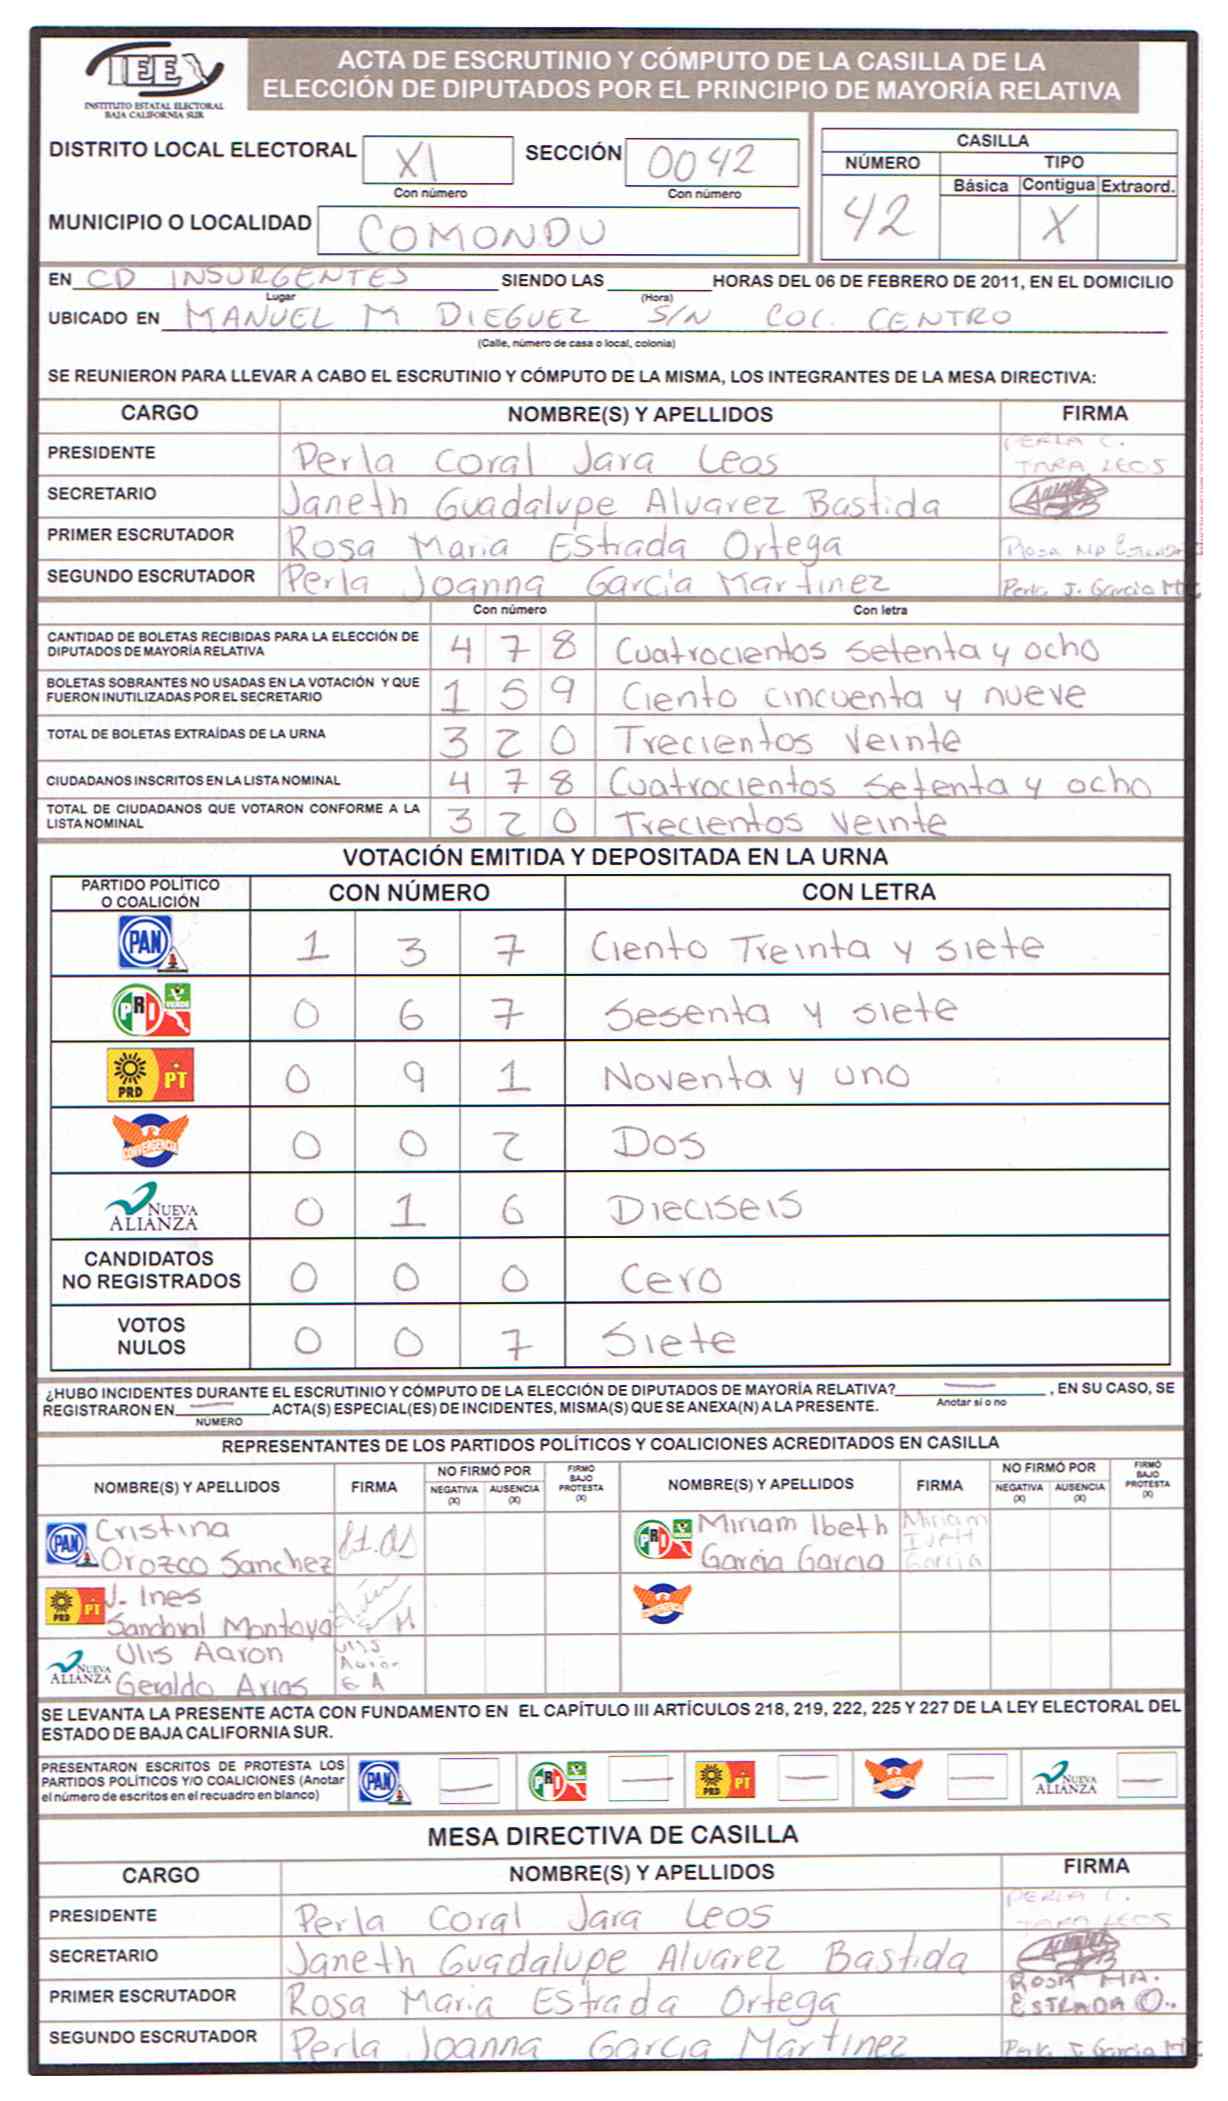 IEE
INSTITUTO ESTATAL ELECTORAL
BAJA CALIFORNIA SUR
ACTA DE ESCRUTINIO Y CÓMPUTO DE LA CASILLA DE LA
ELECCIÓN DE DIPUTADOS POR EL PRINCIPIO DE MAYORÍA RELATIVA
DISTRITO LOCAL ELECTORAL XI SECCIÓN 0042
Con número Con número
MUNICIPIO O LOCALIDAD COMONDU
CASILLA
NÚMERO TIPO
Básica Contigua Extraord.
42 X
EN CD INSURGENTES SIENDO LAS HORAS DEL 06 DE FEBRERO DE 2011, EN EL DOMICILIO
Lugar (Hora)
UBICADO EN MANUEL M DIEGUEZ S/N COL. CENTRO
(Calle, número de casa o local, colonia)
SE REUNIERON PARA LLEVAR A CABO EL ESCRUTINIO Y CÓMPUTO DE LA MISMA, LOS INTEGRANTES DE LA MESA DIRECTIVA:
CARGO NOMBRE(S) Y APELLIDOS FIRMA
PRESIDENTE Perla Coral Jara Leos PERLA C. JARA LEOS
SECRETARIO Janeth Guadalupe Alvarez Bastida
PRIMER ESCRUTADOR Rosa Maria Estrada Ortega Rosa Ma Estrada
SEGUNDO ESCRUTADOR Perla Joanna García Martinez Perla J. Garcia Mtz
Con número Con letra
CANTIDAD DE BOLETAS RECIBIDAS PARA LA ELECCIÓN DE
DIPUTADOS DE MAYORÍA RELATIVA 4 7 8 Cuatrocientos setenta y ocho
BOLETAS SOBRANTES NO USADAS EN LA VOTACIÓN Y QUE
FUERON INUTILIZADAS POR EL SECRETARIO 1 5 9 Ciento cincuenta y nueve
TOTAL DE BOLETAS EXTRAÍDAS DE LA URNA 3 2 0 Trecientos Veinte
CIUDADANOS INSCRITOS EN LA LISTA NOMINAL 4 7 8 Cuatrocientos setenta y ocho
TOTAL DE CIUDADANOS QUE VOTARON CONFORME A LA
LISTA NOMINAL 3 2 0 Trecientos Veinte
VOTACIÓN EMITIDA Y DEPOSITADA EN LA URNA
PARTIDO POLÍTICO
O COALICIÓN CON NÚMERO CON LETRA
PAN 1 3 7 Ciento Treinta y siete
PRI VERDE 0 6 7 Sesenta y siete
PRD PT 0 9 1 Noventa y uno
CONVERGENCIA 0 0 2 Dos
NUEVA ALIANZA 0 1 6 Dieciseis
CANDIDATOS
NO REGISTRADOS 0 0 0 Cero
VOTOS
NULOS 0 0 7 Siete
¿HUBO INCIDENTES DURANTE EL ESCRUTINIO Y CÓMPUTO DE LA ELECCIÓN DE DIPUTADOS DE MAYORÍA RELATIVA? — , EN SU CASO, SE
Anotar sí o no
REGISTRARON EN — ACTA(S) ESPECIAL(ES) DE INCIDENTES, MISMA(S) QUE SE ANEXA(N) A LA PRESENTE.
NÚMERO
REPRESENTANTES DE LOS PARTIDOS POLÍTICOS Y COALICIONES ACREDITADOS EN CASILLA
NOMBRE(S) Y APELLIDOS FIRMA NO FIRMÓ POR NEGATIVA (X) AUSENCIA (X) FIRMÓ BAJO PROTESTA (X) NOMBRE(S) Y APELLIDOS FIRMA NO FIRMÓ POR NEGATIVA (X) AUSENCIA (X) FIRMÓ BAJO PROTESTA (X)
PAN Cristina
Orozco Sanchez
PRI VERDE Miriam Ibeth
Garcia Garcia
Miriam
Ivett
Garcia
PRD PT J. Ines
Sandoval Montoya
CONVERGENCIA
NUEVA ALIANZA Ulis Aaron
Geraldo Arias
Ulis
Aaron
G A
SE LEVANTA LA PRESENTE ACTA CON FUNDAMENTO EN EL CAPÍTULO III ARTÍCULOS 218, 219, 222, 225 Y 227 DE LA LEY ELECTORAL DEL
ESTADO DE BAJA CALIFORNIA SUR.
PRESENTARON ESCRITOS DE PROTESTA LOS
PARTIDOS POLÍTICOS Y/O COALICIONES (Anotar
el número de escritos en el recuadro en blanco)
PAN — PRI VERDE — PRD PT — CONVERGENCIA — NUEVA ALIANZA —
MESA DIRECTIVA DE CASILLA
CARGO NOMBRE(S) Y APELLIDOS FIRMA
PRESIDENTE Perla Coral Jara Leos PERLA C. JARA LEOS
SECRETARIO Janeth Guadalupe Alvarez Bastida
PRIMER ESCRUTADOR Rosa Maria Estrada Ortega ROSA MA. ESTRADA O.
SEGUNDO ESCRUTADOR Perla Joanna Garcia Martinez Perla J Garcia Mtz